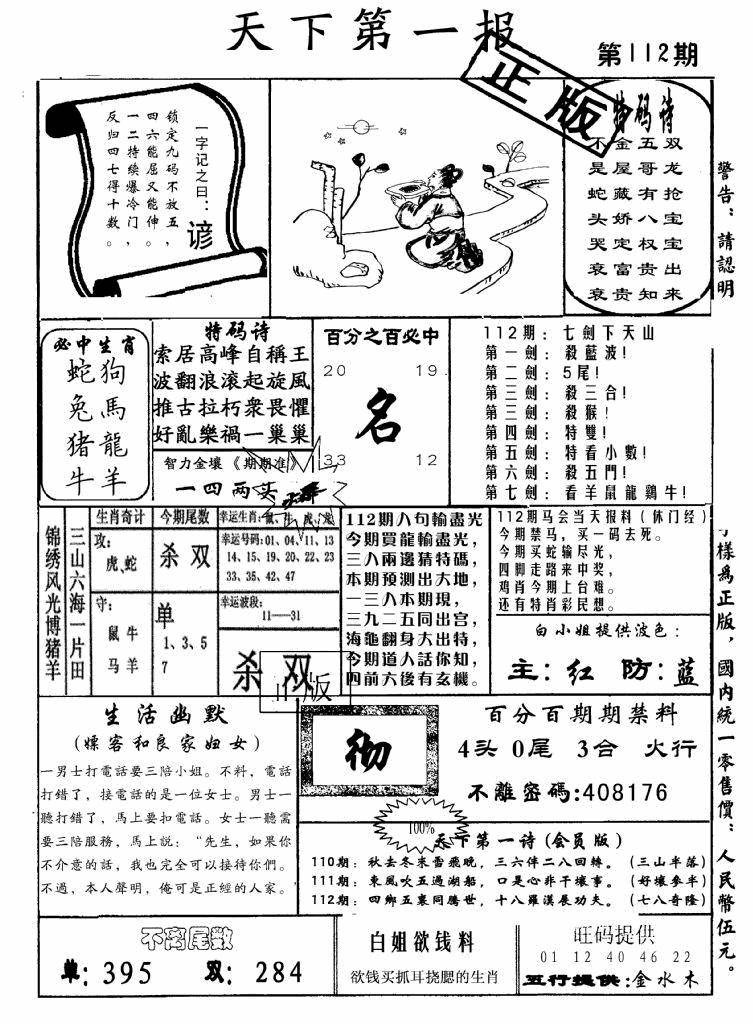 天下第一报
第112期
正版
一字记之曰：谚
锁定九码不放五，
四六能屈又能伸。
一二持续爆冷门，
反归四七得十数。
特码诗
不金五双
是屋哥龙
蛇藏有抢
头娇八宝
哭定权宝
衰富贵出
衰贵知来
警告：請認明
樣為正版，國内統一零售價：人民幣伍元。
必中生肖
蛇狗
兔馬
猪龍
牛羊
特码诗
索居高峰自稱王
波翻浪滚起旋風
推古拉朽衆畏懼
好亂樂禍一巢巢
智力金壤《期期准》
一四两头
百分之百必中
20 19
名
33 12
112期：七劍下天山
第一劍：殺藍波！
第二劍：5尾！
第三劍：殺三合！
第三劍：殺猴！
第四劍：特雙！
第五劍：特看小數！
第六劍：殺五門！
第七劍：看羊鼠龍鷄牛！
锦绣风光博猪羊
三山六海一片田
生肖奇计
攻：
虎、蛇
守：
鼠牛
马羊
今期尾数
杀双
单
1、3、5
7
幸运生肖：鼠、牛、虎、龙
幸运号码：01、04、11、13
14、15、19、20、22、23
33、35、42、47
幸运波段：
11——31
杀双
正版
112期八句輸盡光
今期買龍輸盡光，
三八兩邊猜特碼，
本期預測出大地，
一三八本期現，
三九二五同出宫，
海龜翻身大出特，
今期道人話你知，
四前六後有玄機。
112期马会当天报料（休门经）
今期禁马，买一码去死。
今期买蛇输尽光，
四脚走路来中奖，
鸡肖今期上台难。
还有特肖彩民想。
白小姐提供波色：
主：红 防：蓝
生活幽默
(嫖客和良家妇女)
一男士打電話要三陪小姐。不料，電話
打錯了，接電話的是一位女士。男士一
聽打錯了，馬上要扣電話。女士一聽需
要三陪服務，馬上説：“先生，如果你
不介意的話，我也完全可以接待你們。
不過，本人聲明，俺可是正經的人家。
彻
百分百期期禁料
4头 0尾 3合 火行
不離密碼:408176
100%
天下第一诗(会员版)
110期：秋去冬來雪飛晚，三六伴二八回轉。（三山半落）
111期：東風吹五過湖船，口是心非干壞事。（好壞参半）
112期：四鄉五裏同騰世，十八羅漢展功夫。（七八奇隆）
不离尾数
单: 395 双: 284
白姐欲钱料
欲钱买抓耳挠腮的生肖
旺码提供
01 12 40 46 22
五行提供:金水木